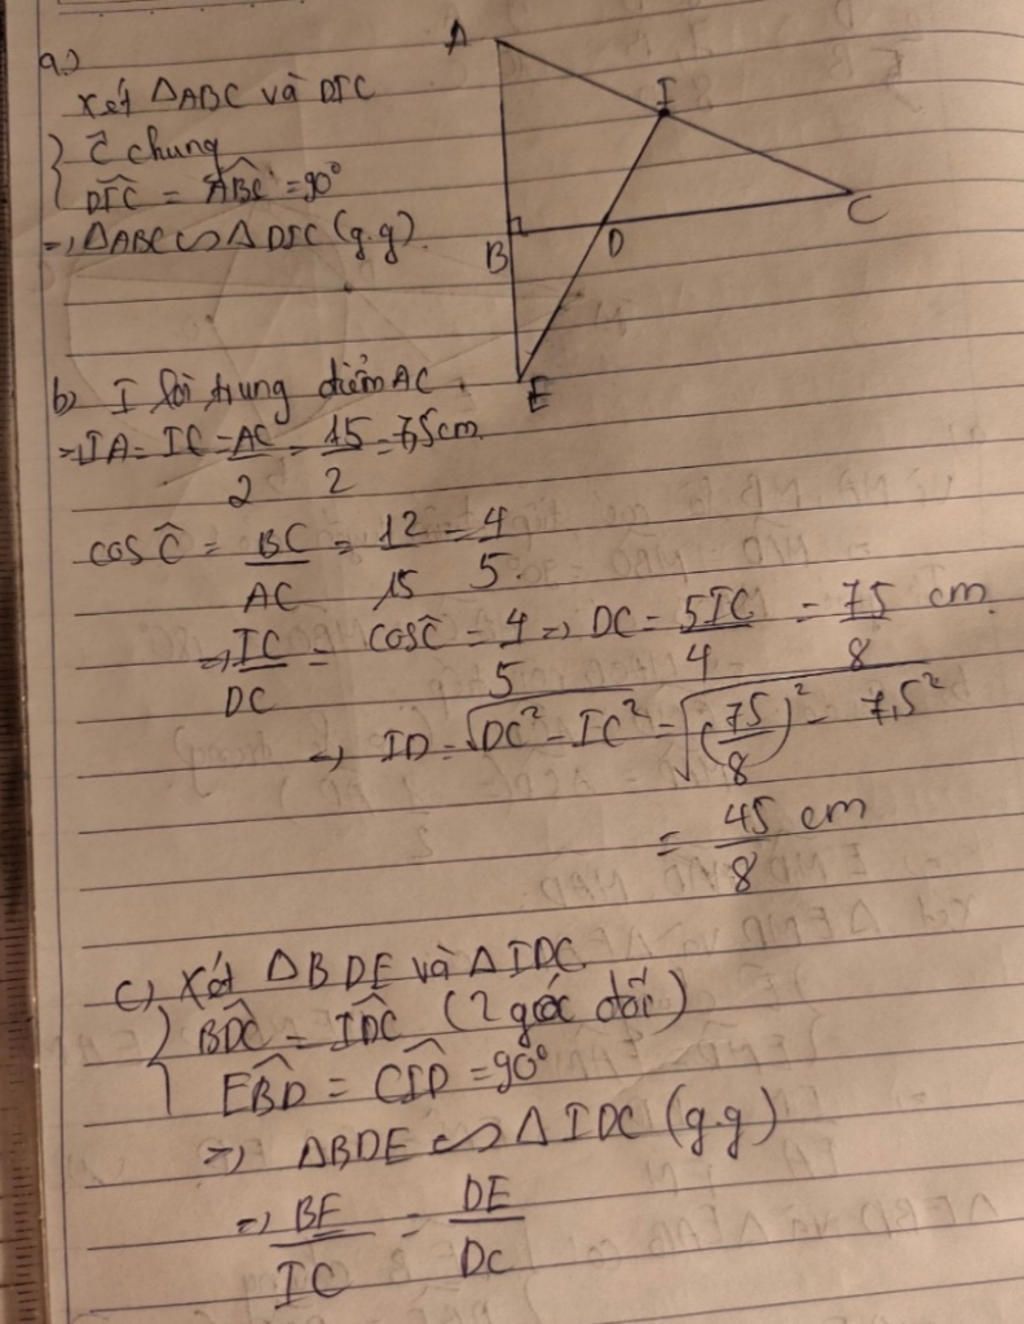 a.)
Xét ΔABC và DIC
{ Ĉ chung
DIC = ABC = 90°
=> ΔABC ∽ ΔDIC (g.g).
A
I
C
B
D
E
b) I là trung điểm AC.
=> IA = IC = AC/2 = 15/2 = 7,5cm.
cos Ĉ = BC/AC = 12/15 = 4/5.
=> IC/DC = cosĈ = 4/5 => DC = 5IC/4 = 75/8 cm.
=> ID = √(DC² - IC²) = √((75/8)² - 7,5²)
= 45/8 cm
c), Xét ΔBDE và ΔIDC.
{ BDC = IDC (2 góc đối)
EBD = CID = 90°
=> ΔBDE ∽ ΔIDC (g.g)
=> BE/IC = DE/DC